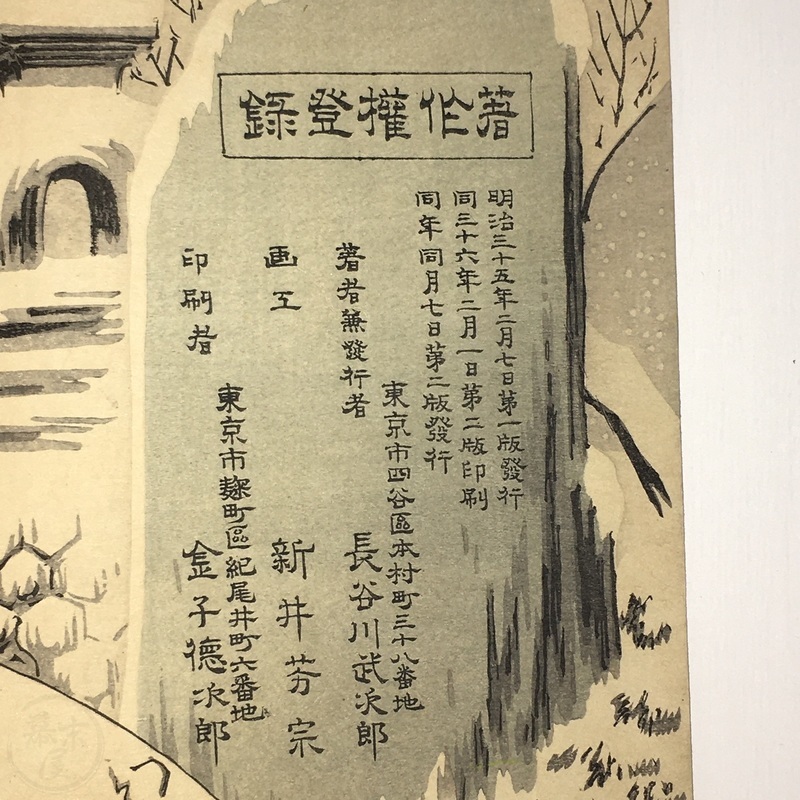 著作權登錄
明治三十五年二月七日第一版發行
同三十六年二月一日第二版印刷
同年同月七日第二版發行
東京市四谷區本村町三十八番地
著者兼發行者　長谷川武次郎
画工　新井芳宗
東京市麹町區紀尾井町六番地
印刷者　金子德次郎